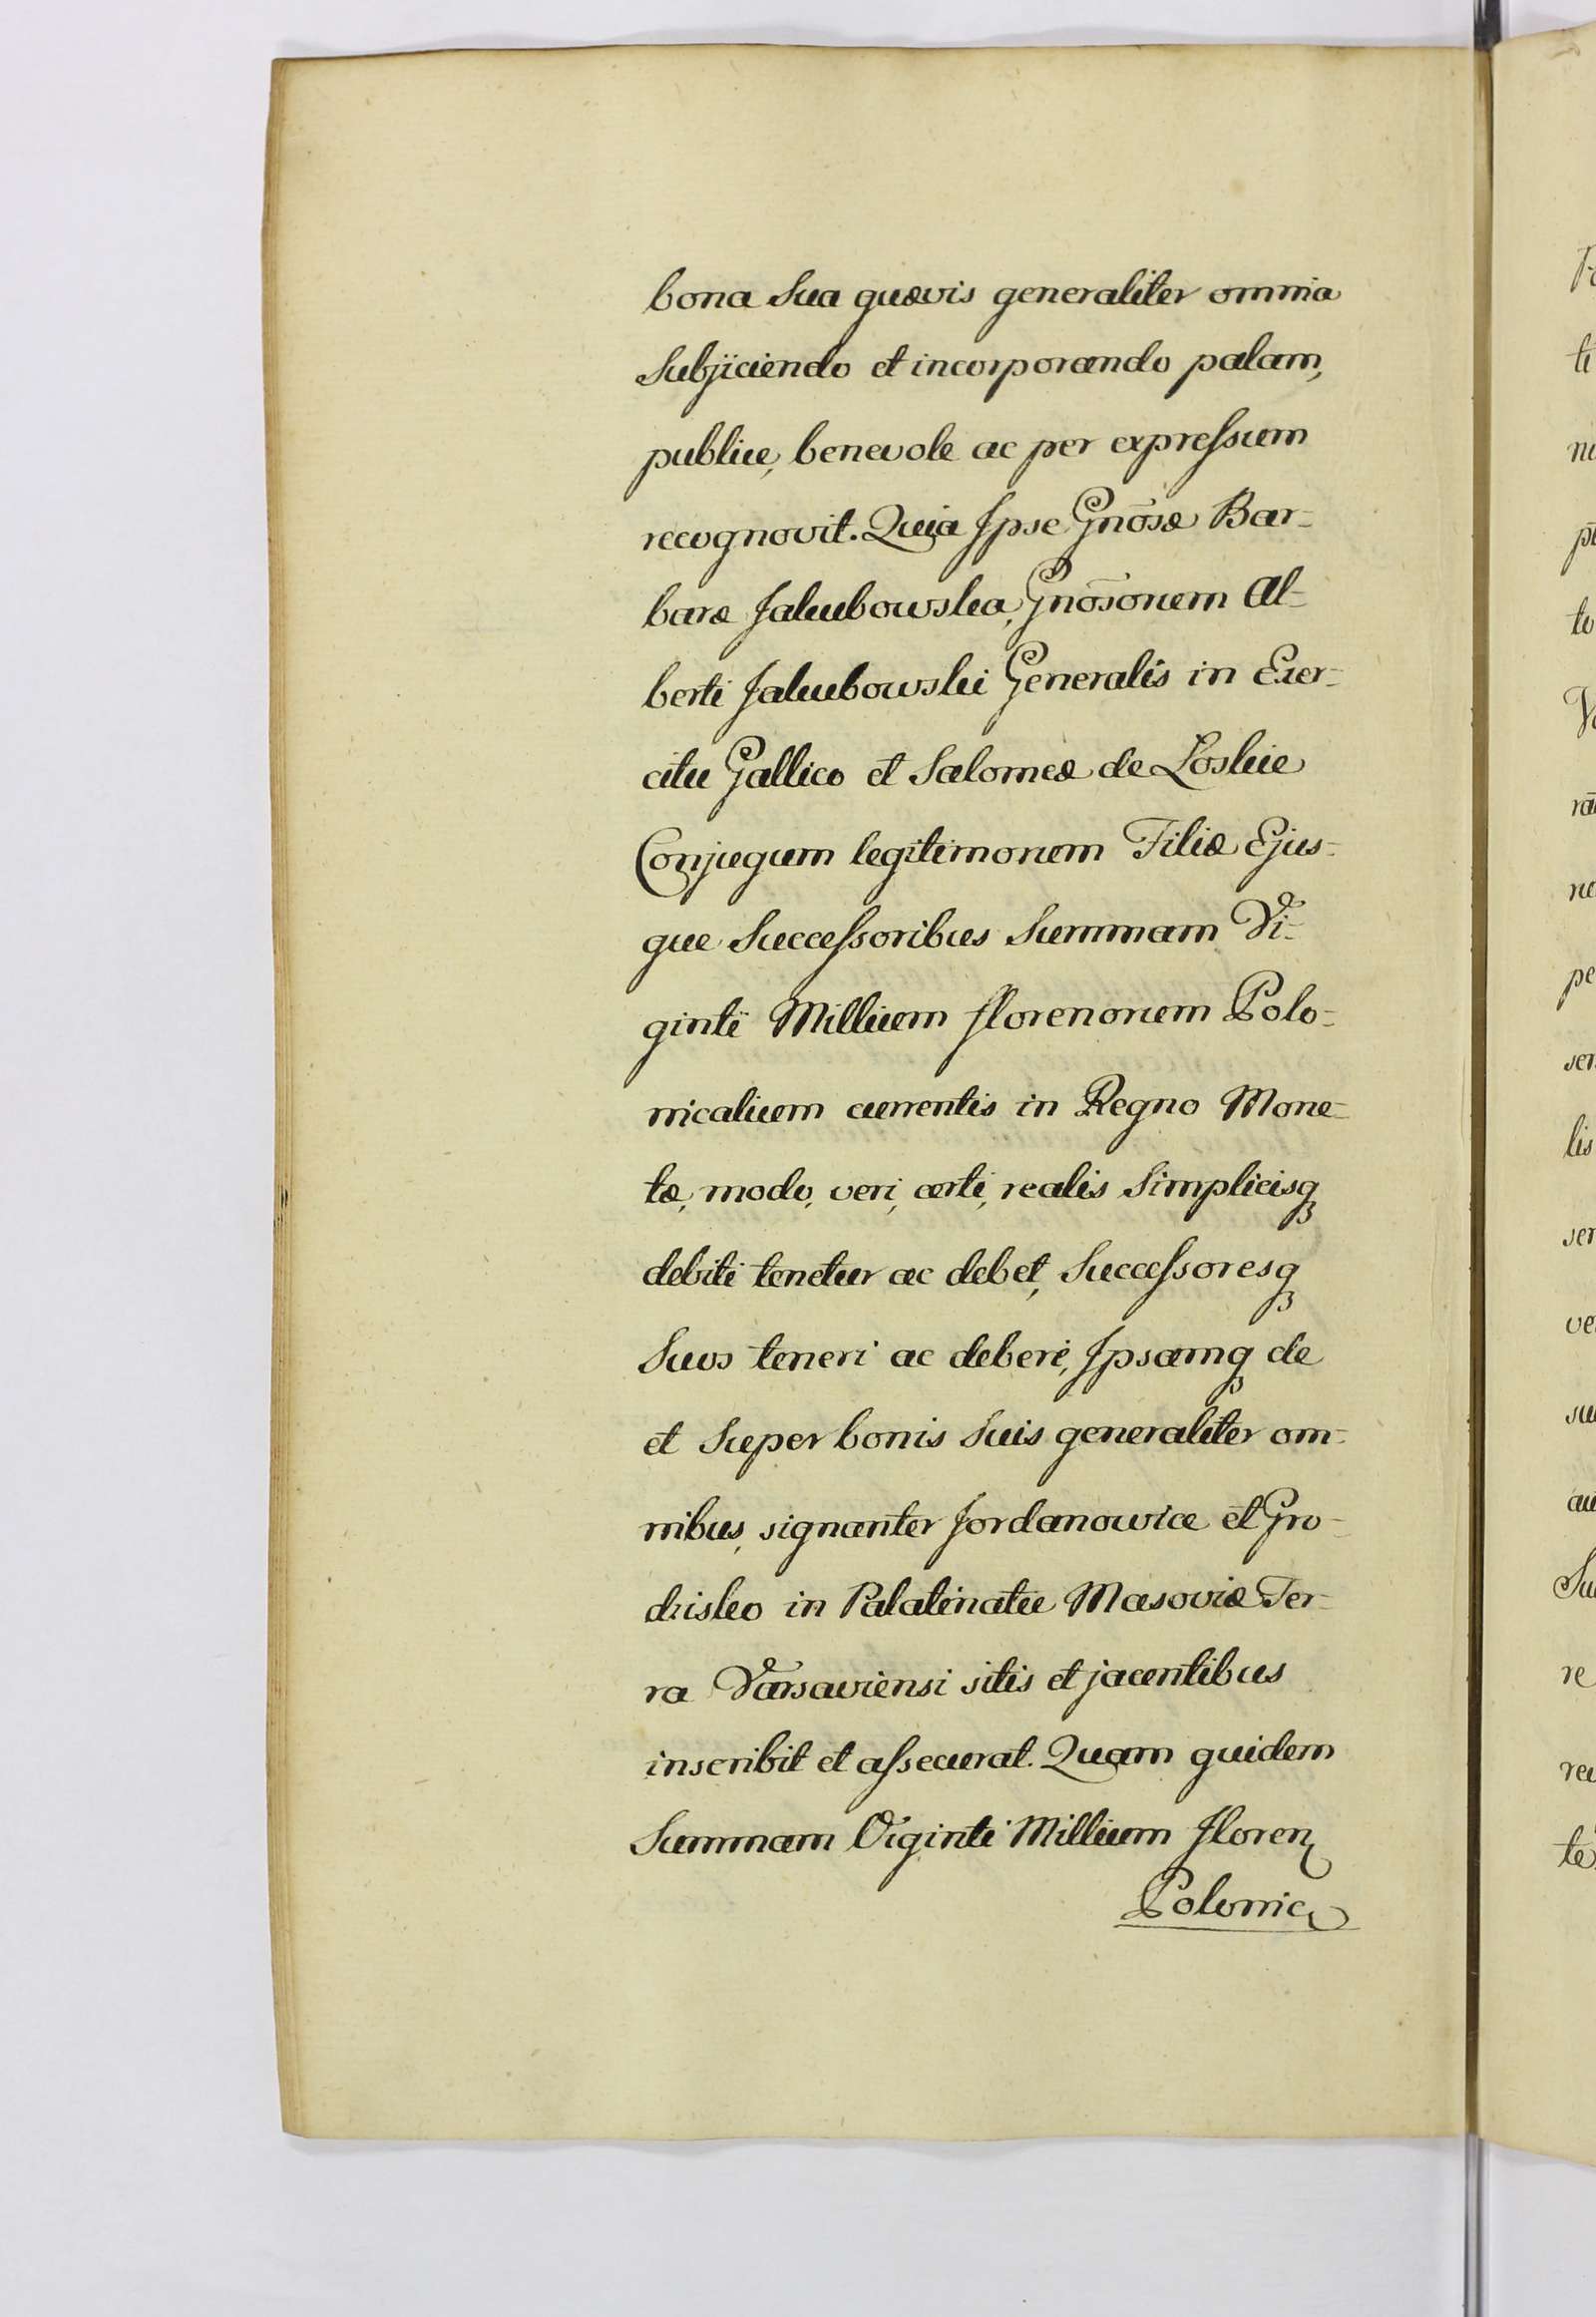 bona Sua quævis generaliter omnia
Subjiciendo et incorporando palam,
publice, benevole ac per expressum
recognovit. Quia Ipse Gnōsæ Bar-
baræ Jakubowska, Gnōsorum Al-
berti Jakubowski Generalis in Exer-
citu Gallico et Salomeæ de Łoskie
Conjugum legitimorum Filiæ Ejus-
que Successoribus Summam Vi-
ginti Millium florenorum Polo-
nicalium currentis in Regno Mone-
tæ, modo, veri, certi, realis Simplicisq
debiti tenetur ac debet, Successoresq
Suos teneri ac deberi, Ipsamq de
et Super bonis Suis generaliter om-
nibus, signanter Jordanowice et Gro-
dzisko in Palatinatu Masoviæ Ter-
ra Varsaviensi sitis et jacentibus
inscribit et assecurat. Quam quidem
Summam Viginti Millium floren
Polonic